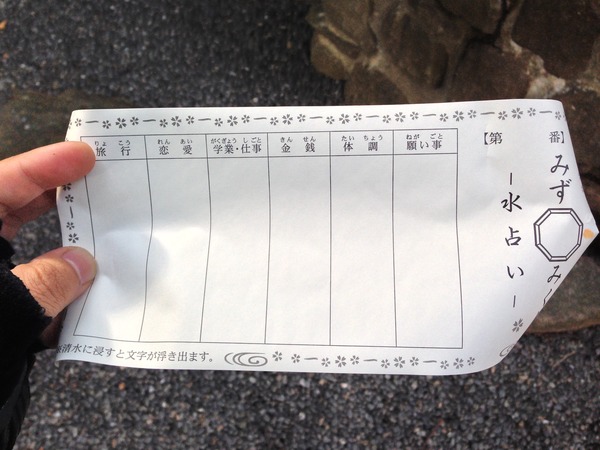 【第　　番】
みず
みく
－水占い－
願い事
ねが ごと
体調
たい ちょう
金銭
きん せん
学業・仕事
がくぎょう しごと
恋愛
れん あい
旅行
りょ こう
清水に浸すと文字が浮き出ます。